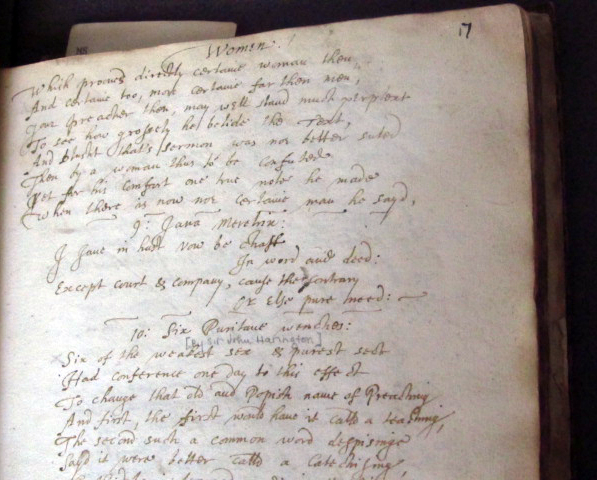 17
Women:
Which proves directly certaine woman then
And certaine too, more certaine far then men,
Your preacher then, may well stand much perplext
To see how grossly he belide the Text,
And blusht that's sermon was no better suted
Then by a woman thus to be confuted
Yet for his comfort one true note he made
When there is now nor certaine man he sayd,
9: Jana Meretrix:
I Jane in hast vow be chast
In word and deed:
Except court & company, cause the contrary
Or Else pure need:
10: Six Puritane wenches:
[By Sir John Harington]
Six of the weakest sex & purest sect
Had conference one day to this effect
To change that old and Popish name of Preaching
And first, the first would have it calld a teaching,
The second such a common word despisinge
Sayd it were better calld a Catechising,